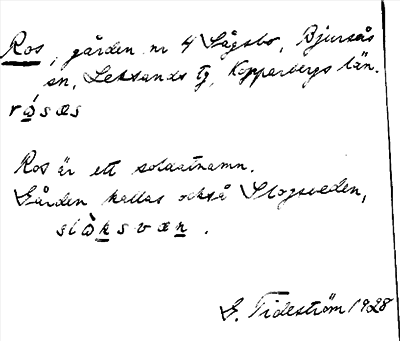 Ros, gården nr 4 Sågsbo, Bjursås
sn, Leksands tg, Kopparbergs län.
rósæs
Ros är ett soldatnamn.
Gården kallas också Slogsveden,
slòksvæn.
G. Tideström 1928